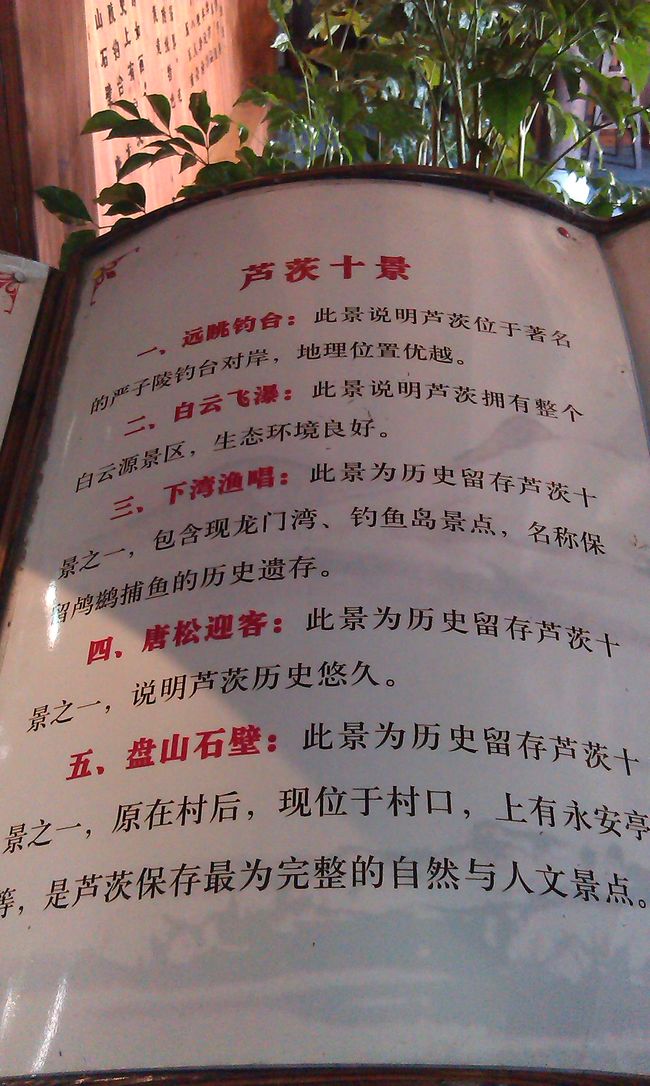 芦茨十景
一、远眺钓台：此景说明芦茨位于著名
的严子陵钓台对岸，地理位置优越。
二、白云飞瀑：此景说明芦茨拥有整个
白云源景区，生态环境良好。
三、下湾渔唱：此景为历史留存芦茨十
景之一，包含现龙门湾、钓鱼岛景点，名称保
留鸬鹚捕鱼的历史遗存。
四、唐松迎客：此景为历史留存芦茨十
景之一，说明芦茨历史悠久。
五、盘山石壁：此景为历史留存芦茨十
景之一，原在村后，现位于村口，上有永安亭
等，是芦茨保存最为完整的自然与人文景点。